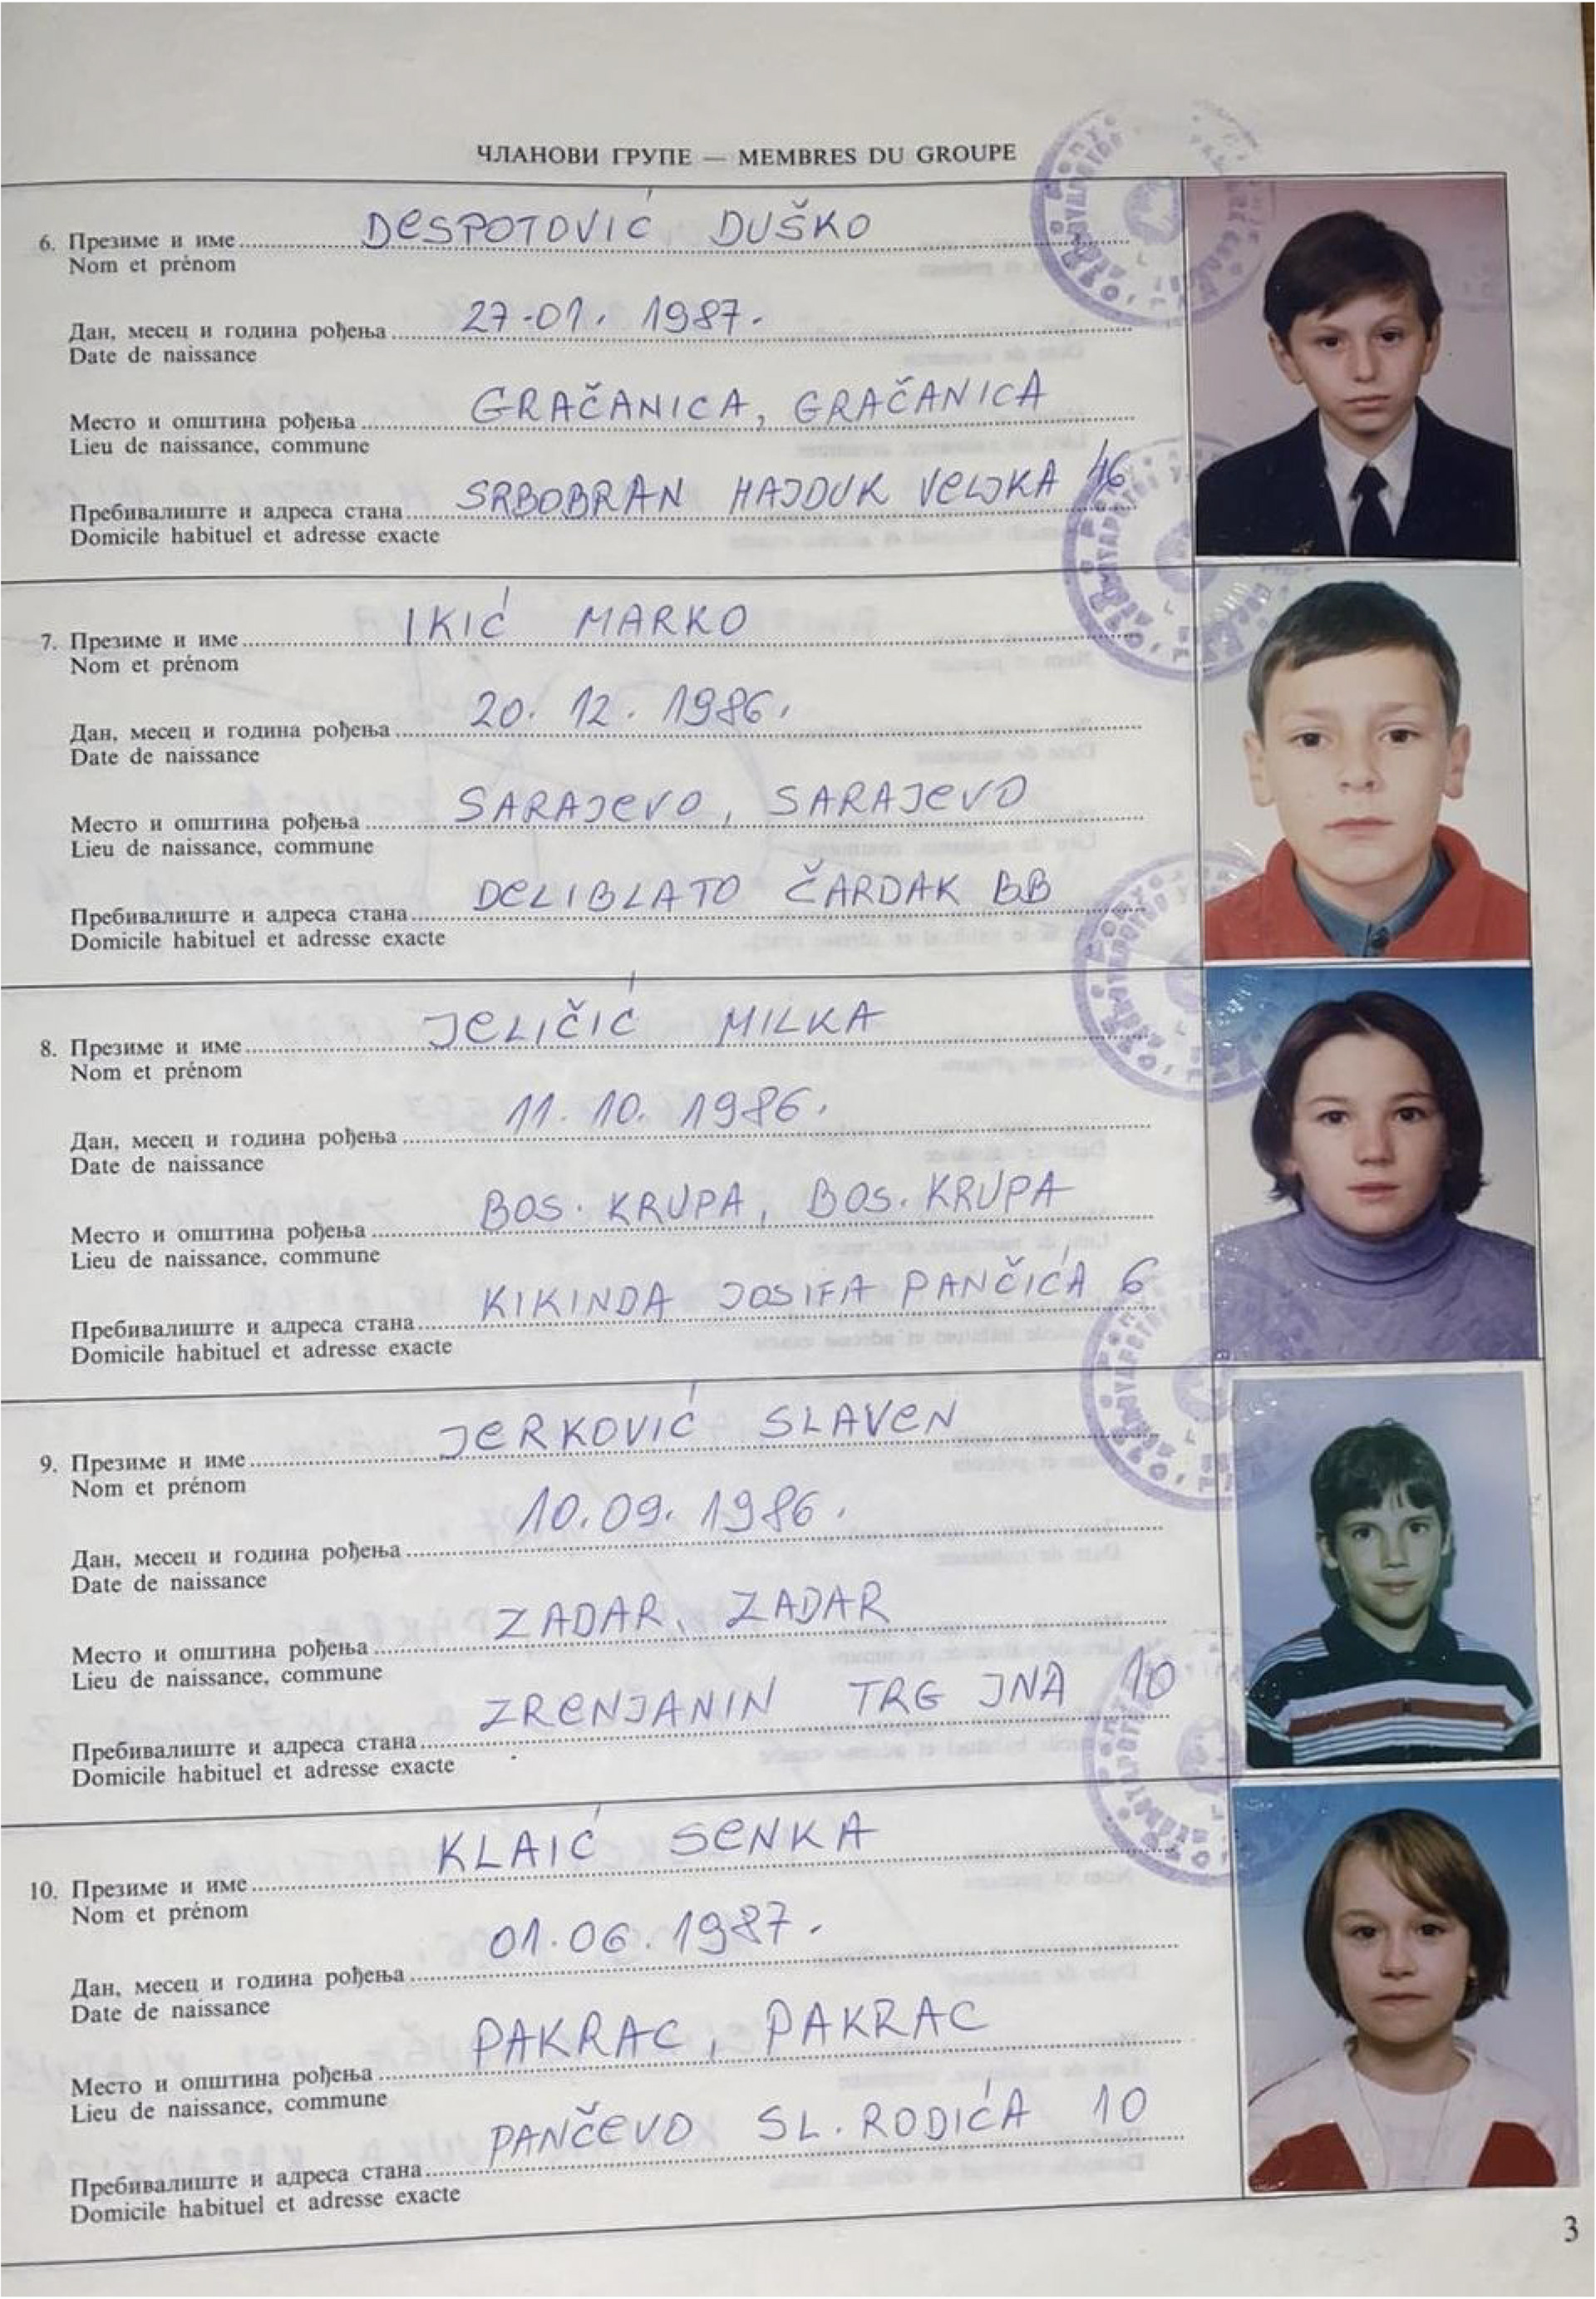 ЧЛАНОВИ ГРУПЕ — MEMBRES DU GROUPE
6. Презиме и име DESPOTOVIĆ DUŠKO
Nom et prénom
Дан, месец и година рођења 27.01. 1987.
Date de naissance
Место и општина рођења GRAČANICA, GRAČANICA
Lieu de naissance, commune
Пребивалиште и адреса стана SRBOBRAN HAJDUK VELJKA 46
Domicile habituel et adresse exacte
7. Презиме и име IKIĆ MARKO
Nom et prénom
Дан, месец и година рођења 20. 12. 1986.
Date de naissance
Место и општина рођења SARAJEVO, SARAJEVO
Lieu de naissance, commune
Пребивалиште и адреса стана DELIBLATO ČARDAK BB
Domicile habituel et adresse exacte
8. Презиме и име JELIČIĆ MILKA
Nom et prénom
Дан, месец и година рођења 11. 10. 1986.
Date de naissance
Место и општина рођења BOS. KRUPA, BOS. KRUPA
Lieu de naissance, commune
Пребивалиште и адреса стана KIKINDA JOSIFA PANČIĆA 6
Domicile habituel et adresse exacte
9. Презиме и име JERKOVIĆ SLAVEN
Nom et prénom
Дан, месец и година рођења 10.09. 1986.
Date de naissance
Место и општина рођења ZADAR, ZADAR
Lieu de naissance, commune
Пребивалиште и адреса стана ZRENJANIN TRG JNA 10
Domicile habituel et adresse exacte
10. Презиме и име KLAIĆ SENKA
Nom et prénom
Дан, месец и година рођења 01.06.1987.
Date de naissance
Место и општина рођења PAKRAC, PAKRAC
Lieu de naissance, commune
Пребивалиште и адреса стана PANČEVO SL. RODIĆA 10
Domicile habituel et adresse exacte
3